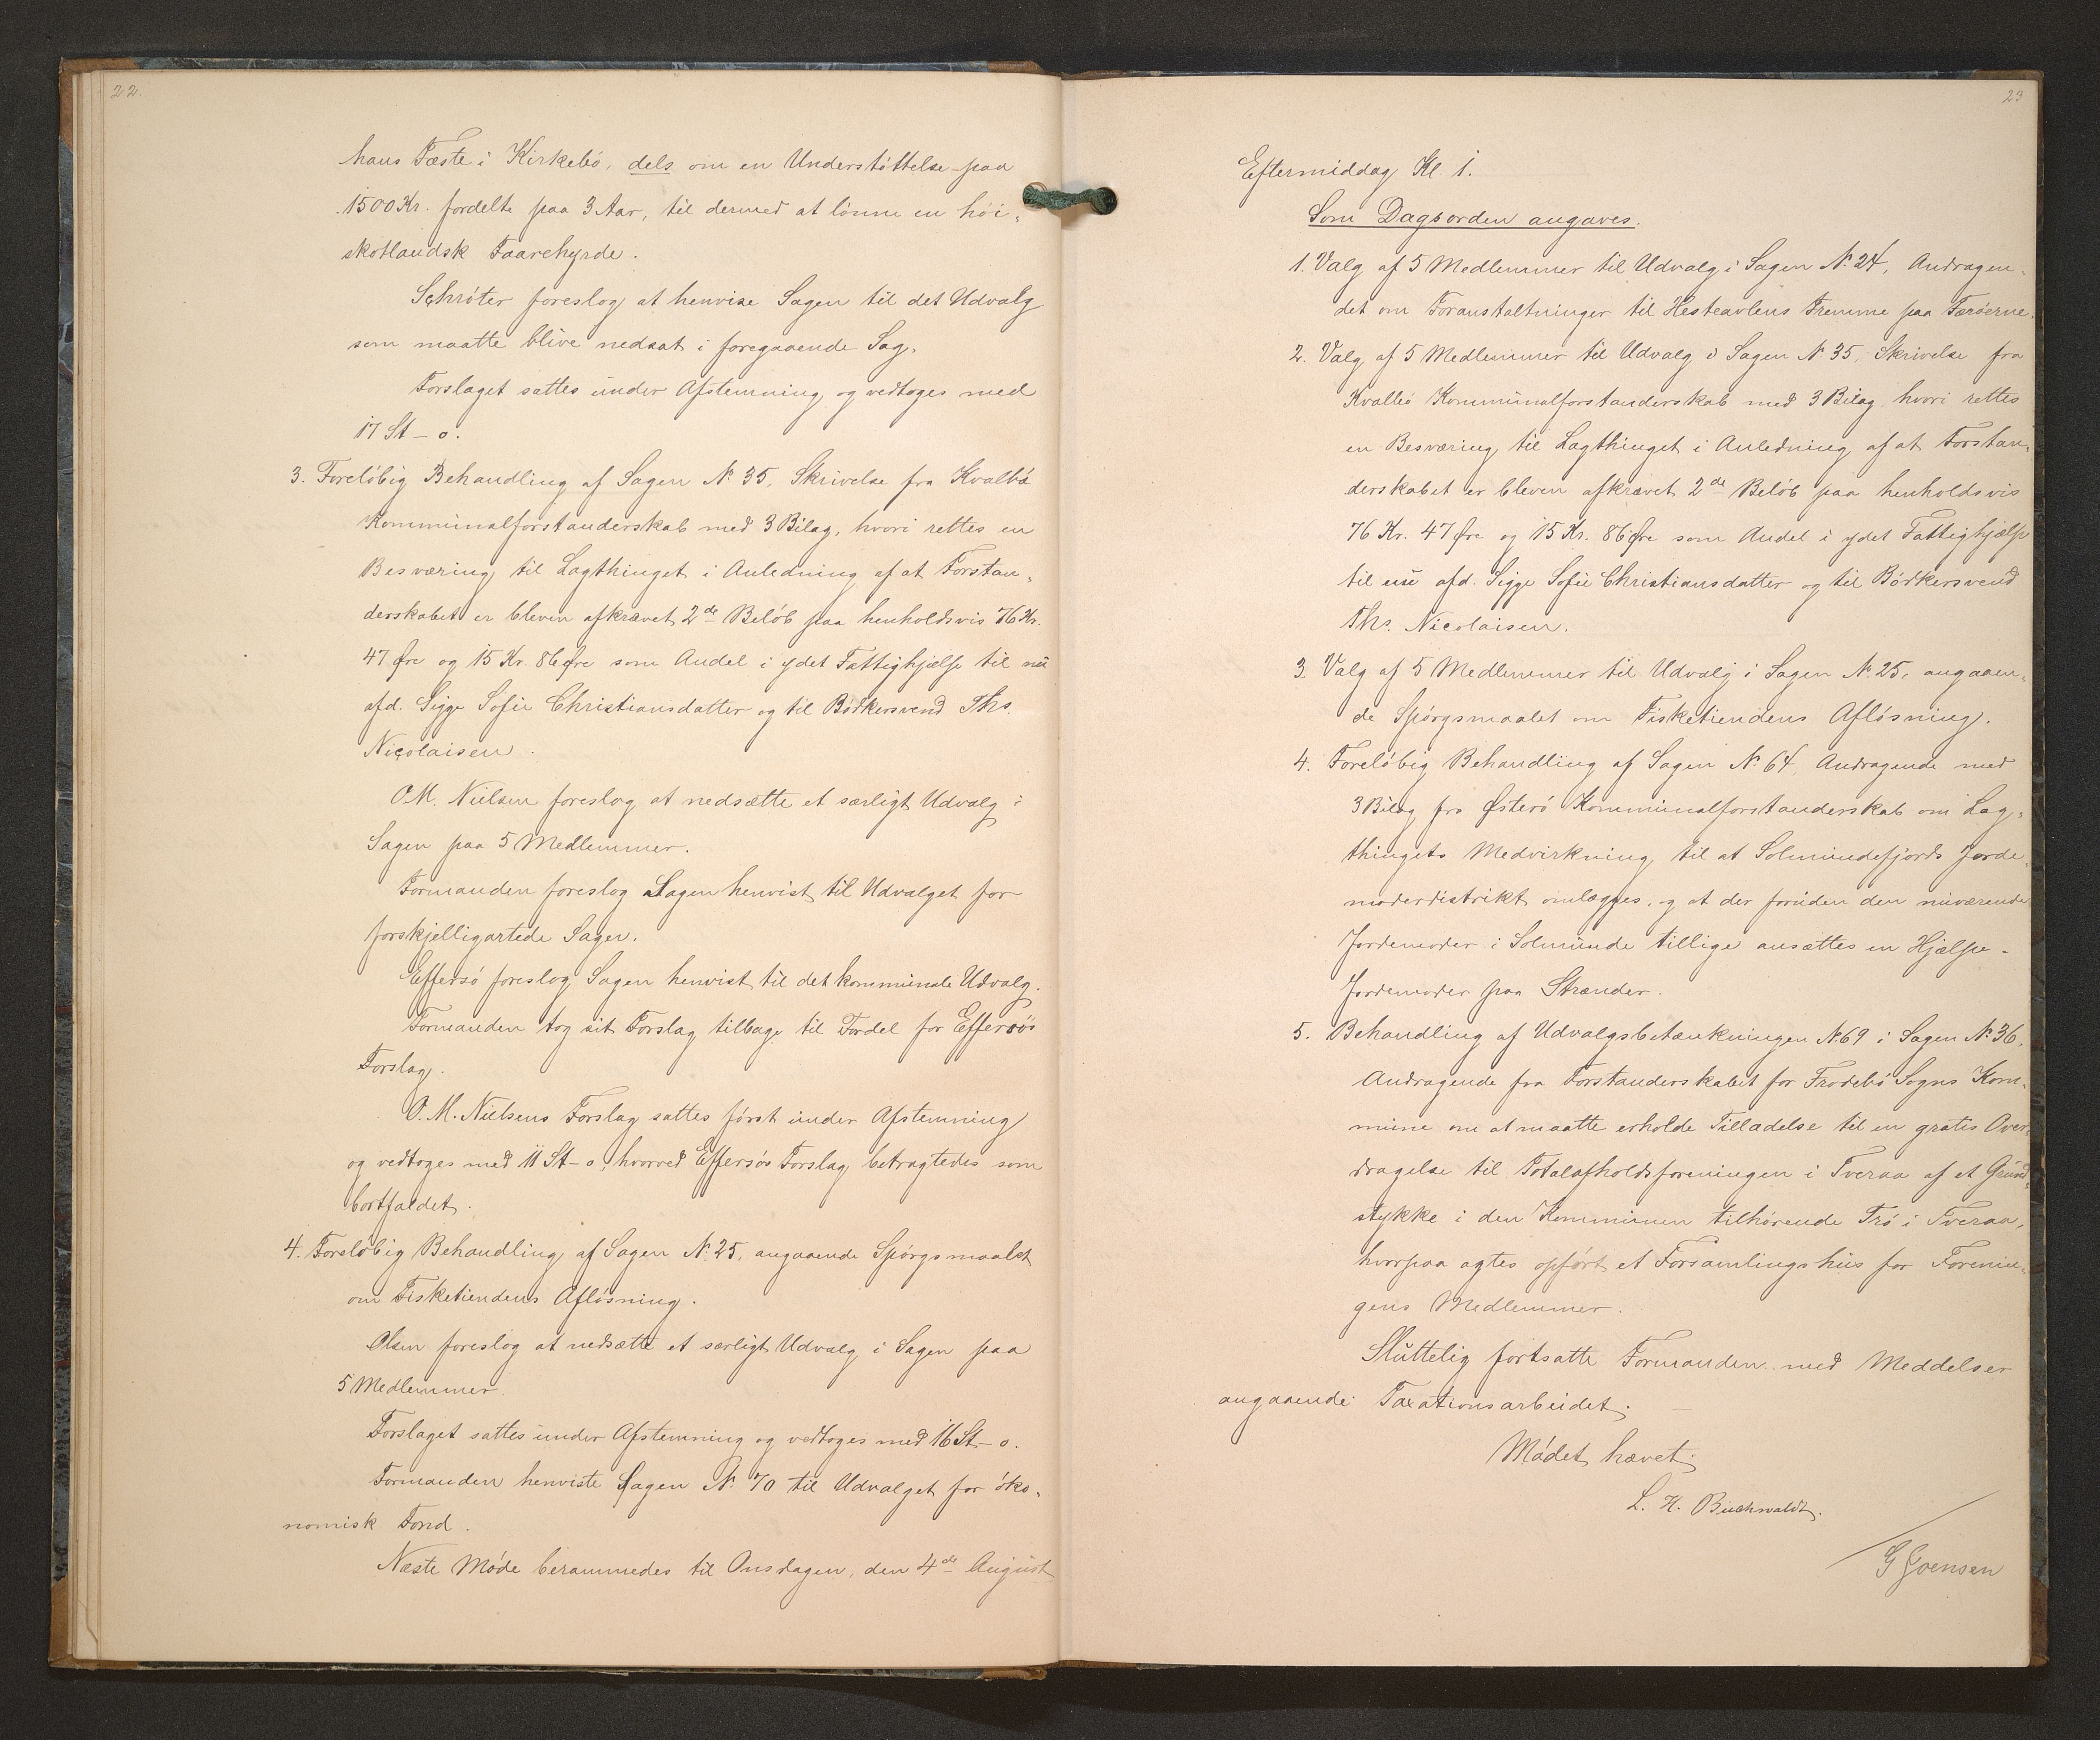 22.
hans Fæste i Kirkebö, dels om en Understöttelse paa
1500 Kr. fordelte paa 3 Aar, til dermed at lönne en höi-
skotlandsk Faarehyrde.
Schröter foreslog at henvise Sagen til det Udvalg
som maatte blive nedsat i foregaaende Sag.
Forslaget sattes under Afstemning og vedtoges med
17 St - o.
3. Forelöbig Behandling af Sagen No 35, Skrivelse fra Kvalbö
Kommunalforstanderskab med 3 Bilag, hvori rettes en
Besværing til Lagthinget i Anledning af at Forstan-
derskabet er bleven afkrævet 2de Belöb paa henholdsvis 76 Kr.
47 Øre og 15 Kr. 86 Øre som Andel i ydet Fattighjælp til nu
afd. Sigge Sofie Christiansdatter og til Bödkersvend Ths.
Nicolaisen.
O.M. Nielsen foreslog at nedsætte et særligt Udvalg i
Sagen paa 5 Medlemmer.
Formanden foreslog Sagen henvist til Udvalget for
forskjelligartede Sager.
Effersö foreslog Sagen henvist til det kommunale Udvalg.
Formanden tog sit Forslag tilbage til Fordel for Effersös
Forslag.
O. M. Nielsens Forslag sattes först under Afstemning
og vedtoges med 11 St - o, hvorved Effersös Forslag betragtedes som
bortfaldet.
4. Forelöbig Behandling af Sagen No 25, angaaende Spörgsmaalet
om Fisketiendens Aflösning.
Olsen foreslog at nedsætte et særligt Udvalg i Sagen paa
5 Medlemmer
Forslaget sattes under Afstemning og vedtoges med 16 St - o.
Formanden henviste Sagen No 70 til Udvalget for öko-
nomisk Fond.
Næste Möde berammedes til Onsdagen, den 4de August
23
Eftermiddag Kl. 1.
Som Dagsorden angaves.
1. Valg af 5 Medlemmer til Udvalg i Sagen No 24, Andragen-
det om Foranstaltninger til Hesteavlens Fremme paa Færöerne.
2. Valg af 5 Medlemmer til Udvalg i Sagen No 35, Skrivelse fra
Kvalbö Kommunalforstanderskab med 3 Bilag, hvori rettes
en Besværing til Lagthinget i Anledning af at Forstan-
derskabet er bleven afkrævet 2de Belöb paa henholdsvis
76 Kr. 47 Øre og 15 Kr. 86 Øre som Andel i ydet Fattighjælp
til nu afd. Sigge Sofie Christiansdatter og til Bödkersvend
Ths. Nicolaisen.
3. Valg af 5 Medlemmer til Udvalg i Sagen No 25, angaaen-
de Spörgsmaalet om Fisketiendens Aflösning.
4. Forelöbig Behandling af Sagen No 64, Andragende med
3 Bilag fra Østerö Kommunalforstanderskab om Lag-
thingets Medvirkning til at Solmundefjords Jorde-
moderdistrikt omlægges, og at der foruden den nuværende
Jordemoder i Solmunde tillige ansættes en Hjælpe-
Jordemoder paa Strænder.
5. Behandling af Udvalgsbetænkningen No 69 i Sagen No 36,
Andragende fra Forstanderskabet for Frodebö Sogns Kom-
mune om at maatte erholde Tilladelse til en gratis Over-
dragelse til Totalafholdsforeningen i Tveraa af et Grund-
stykke i den Kommunen tilhörende Trö i Tveraa,
hvorpaa agtes opfört et Forsamlingshus for Forenin-
gens Medlemmer.
Sluttelig fortsatte Formanden med Meddelser
angaaende Taxationsarbeidet.
Mödet hævet.
L. H. Buchwaldt.
G Joensen